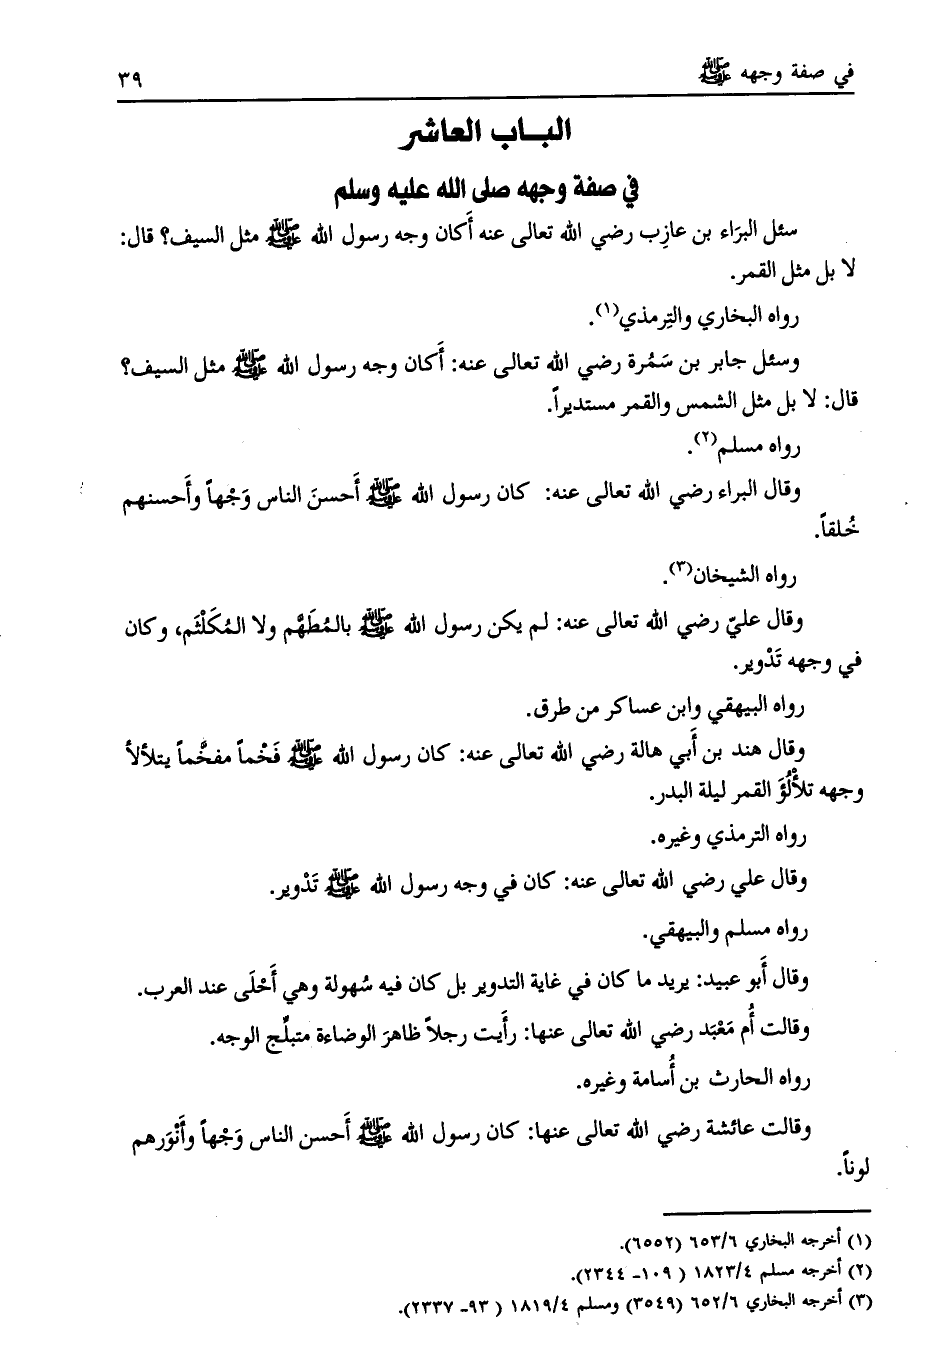 في صفة وجهه ﷺ ٣٩
البـاب العاشر
في صفة وجهه صلى الله عليه وسلم
سئل البرَاء بن عازِب رضي الله تعالى عنه أَكان وجه رسول الله ﷺ مثل السيف؟ قال:
لا بل مثل القمر.
رواه البخاري والتِرمذي(١).
وسئل جابر بن سَمُرة رضي الله تعالى عنه: أَكان وجه رسول الله ﷺ مثل السيف؟
قال: لا بل مثل الشمس والقمر مستديراً.
رواه مسلم(٢).
وقال البراء رضي الله تعالى عنه: كان رسول الله ﷺ أَحسنَ الناس وَجْهاً وأَحسنهم
خُلقاً.
رواه الشيخان(٣).
وقال عليّ رضي الله تعالى عنه: لم يكن رسول الله ﷺ بالمُطَهَّم ولا المُكَلْثَم، وكان
في وجهه تَدْوير.
رواه البيهقي وابن عساكر من طرق.
وقال هند بن أَبي هالة رضي الله تعالى عنه: كان رسول الله ﷺ فَخْماً مفخَّماً يتلألأ
وجهه تلأْلُؤَ القمر ليلة البدر.
رواه الترمذي وغيره.
وقال علي رضي الله تعالى عنه: كان في وجه رسول الله ﷺ تَدْوير.
رواه مسلم والبيهقي.
وقال أَبو عبيد: يريد ما كان في غاية التدوير بل كان فيه سُهولة وهي أَحْلَى عند العرب.
وقالت أُم مَعْبَد رضي الله تعالى عنها: رأَيت رجلاً ظاهرَ الوضاءة متبلِّج الوجه.
رواه الحارث بن أُسامة وغيره.
وقالت عائشة رضي الله تعالى عنها: كان رسول الله ﷺ أَحسن الناس وَجْهاً وأَنْوَرهم
لوناً.
(١) أخرجه البخاري ٦٥٣/٦ (٦٥٥٢).
(٢) أخرجه مسلم ١٨٢٣/٤ ( ١٠٩- ٢٣٤٤).
(٣) أخرجه البخاري ٦٥٢/٦ (٣٥٤٩) ومسلم ١٨١٩/٤ ( ٩٣- ٢٣٣٧).